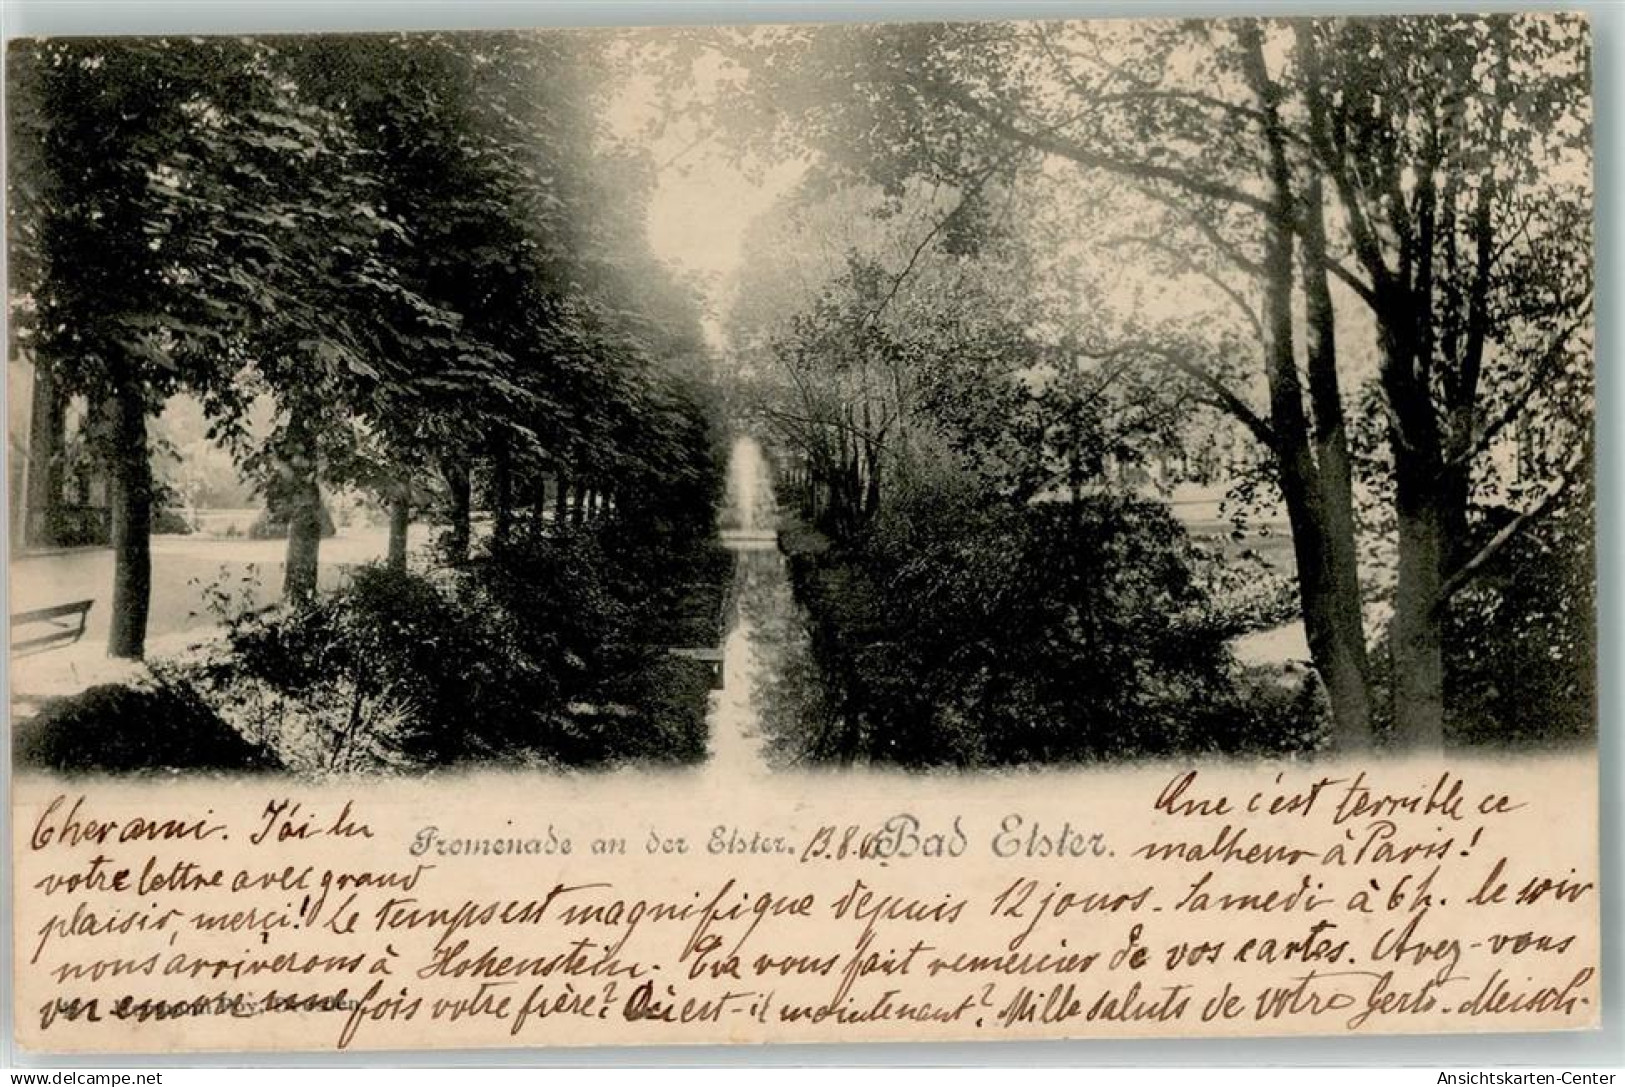 Cher ami. J'ai lu
votre lettre avec grand
plaisir, merçi! Le temps est magnifique depuis 12 jours. Samedi à 6 h. le soir
nous arriverons à Hohenstein. Eva vous fait remercier de vos cartes. Avez-vous
vu encore une fois votre frère? Où est-il maintenant? Mille saluts de votre Gert. Meisch-
Que c'est terrible ce
malheur à Paris!
Promenade an der Elster. 13.8. Bad Elster.
delcampe.net
Ansichtskarten-Center